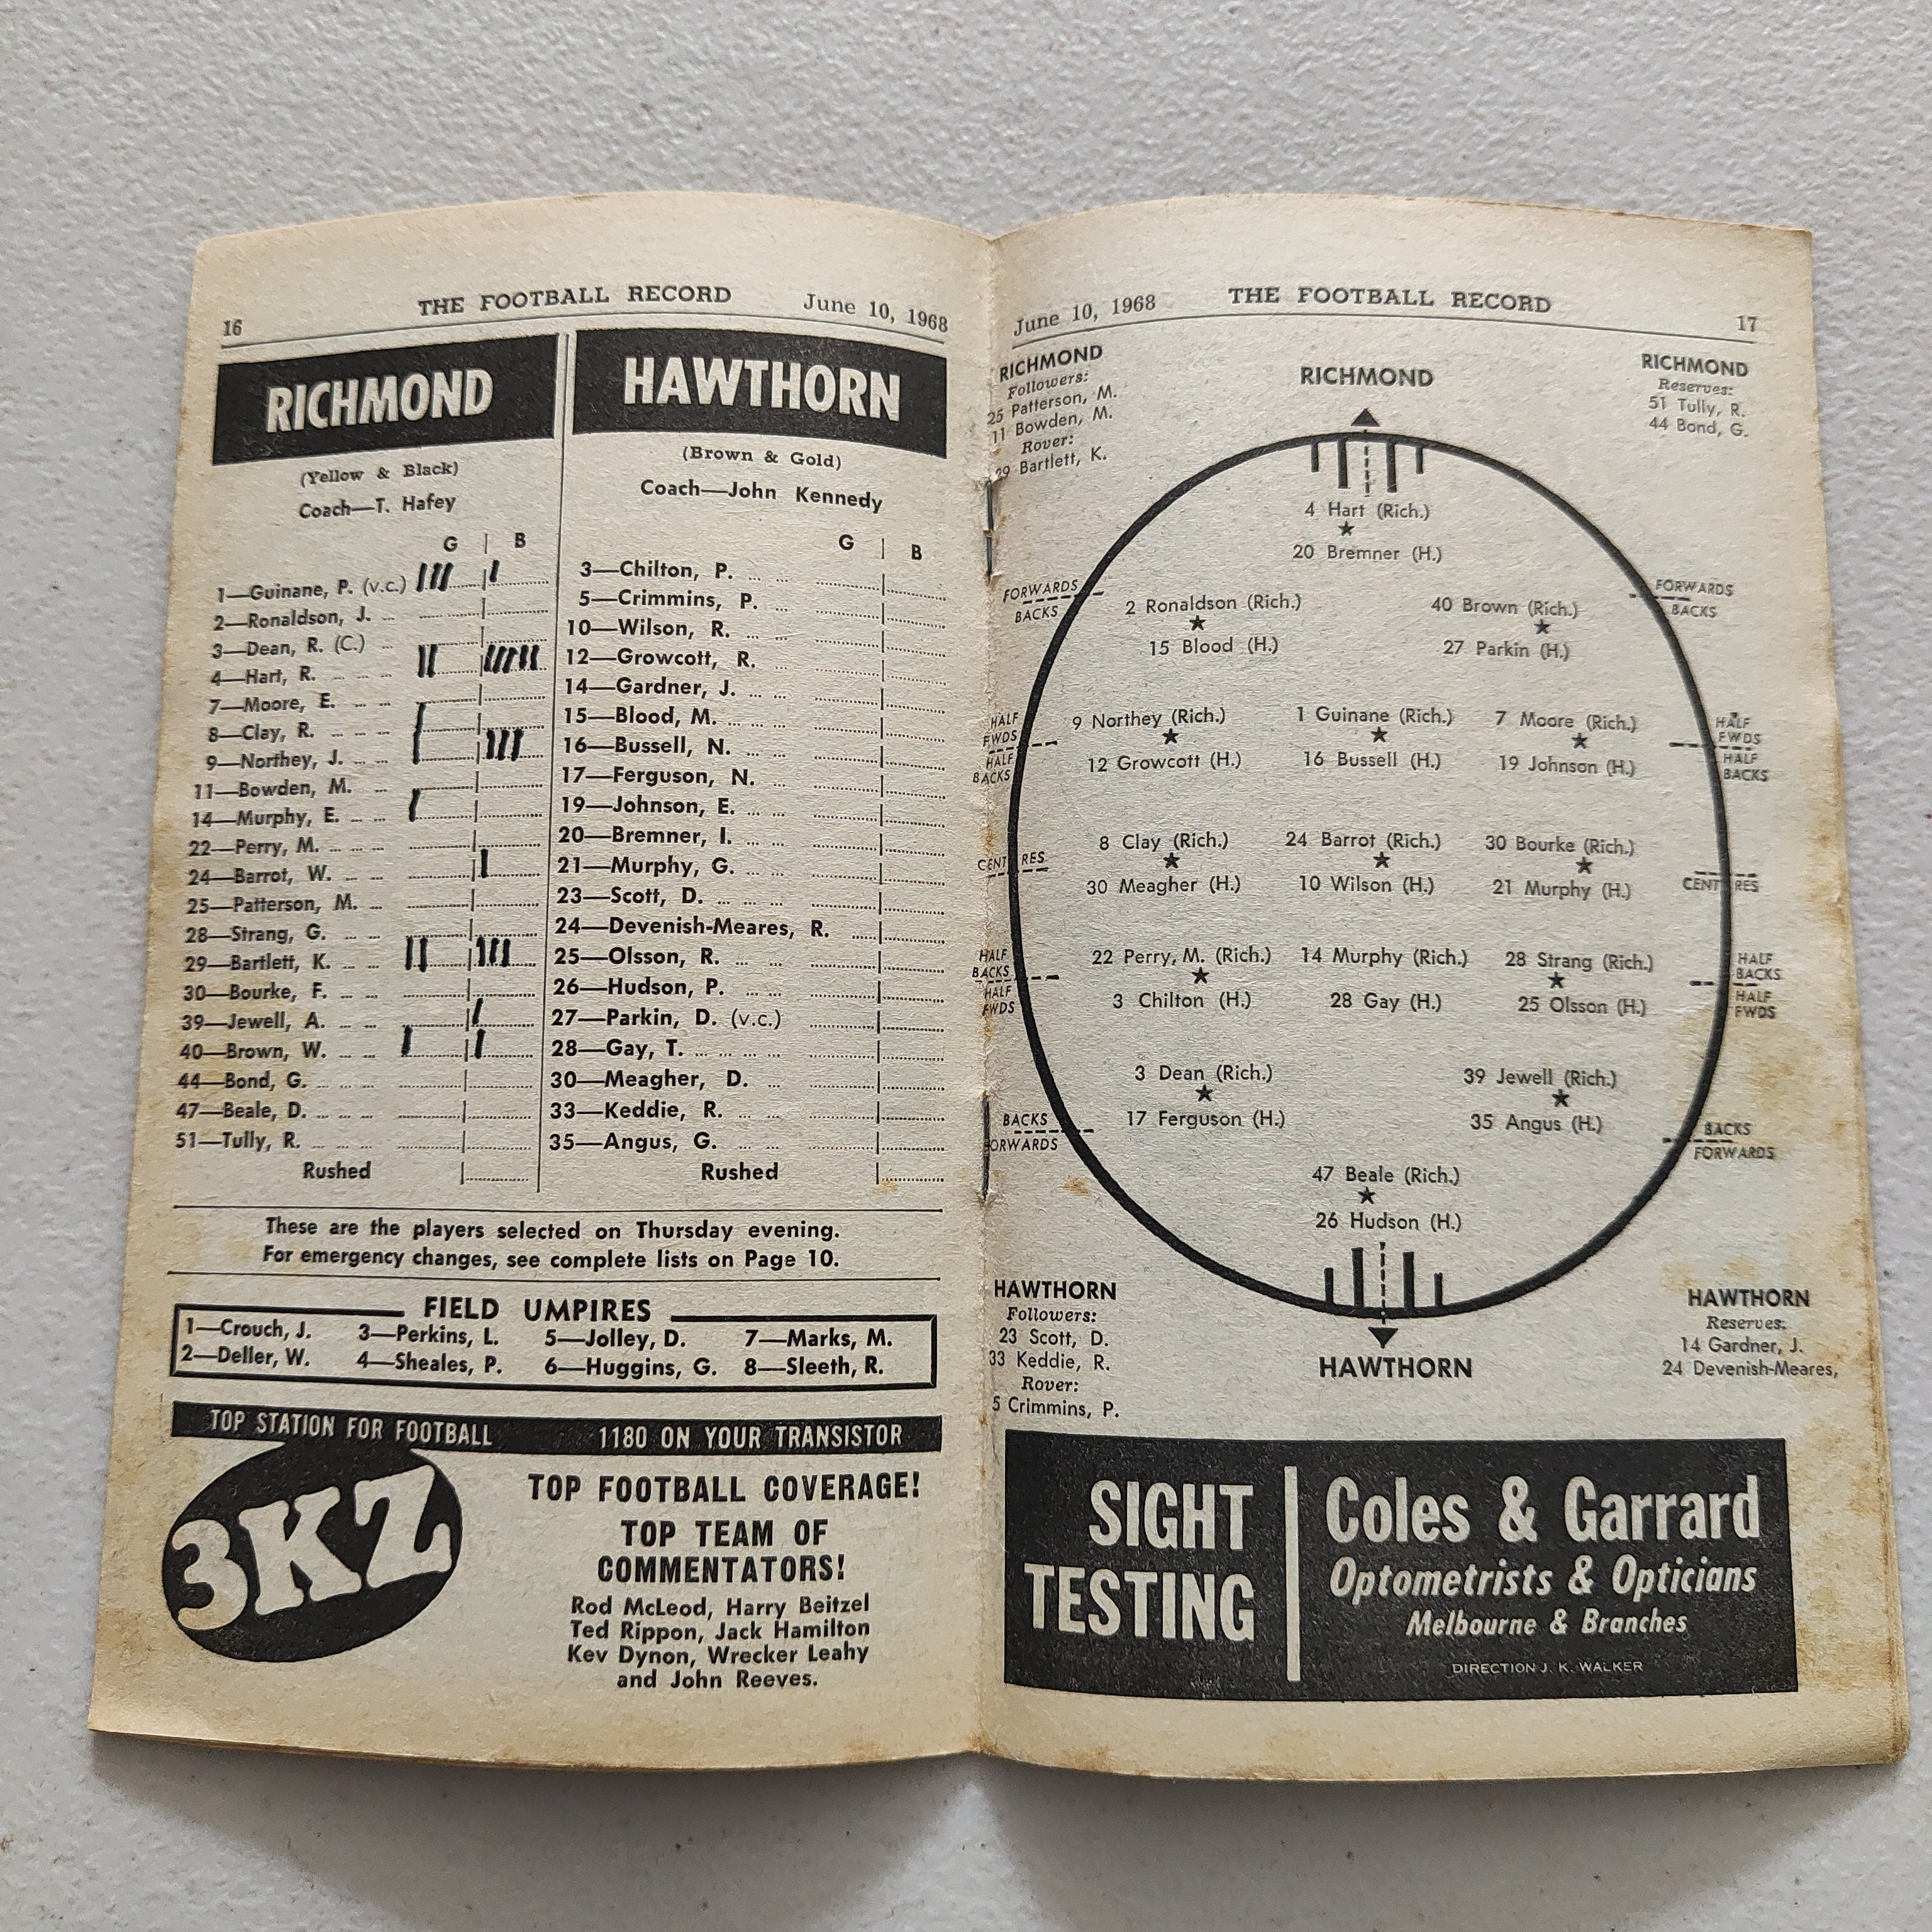 16
THE FOOTBALL RECORD June 10, 1968
RICHMOND
(Yellow & Black)
Coach—T. Hafey
G B
1—Guinane, P. (v.c.)
2—Ronaldson, J.
3—Dean, R. (C.)
4—Hart, R.
7—Moore, E.
8—Clay, R.
9—Northey, J.
11—Bowden, M.
14—Murphy, E.
22—Perry, M.
24—Barrot, W.
25—Patterson, M.
28—Strang, G.
29—Bartlett, K.
30—Bourke, F.
39—Jewell, A.
40—Brown, W.
44—Bond, G.
47—Beale, D.
51—Tully, R.
Rushed
HAWTHORN
(Brown & Gold)
Coach—John Kennedy
G B
3—Chilton, P.
5—Crimmins, P.
10—Wilson, R.
12—Growcott, R.
14—Gardner, J.
15—Blood, M.
16—Bussell, N.
17—Ferguson, N.
19—Johnson, E.
20—Bremner, I.
21—Murphy, G.
23—Scott, D.
24—Devenish-Meares, R.
25—Olsson, R.
26—Hudson, P.
27—Parkin, D. (v.c.)
28—Gay, T.
30—Meagher, D.
33—Keddie, R.
35—Angus, G.
Rushed
These are the players selected on Thursday evening.
For emergency changes, see complete lists on Page 10.
FIELD UMPIRES
1—Crouch, J. 3—Perkins, L. 5—Jolley, D. 7—Marks, M.
2—Deller, W. 4—Sheales, P. 6—Huggins, G. 8—Sleeth, R.
TOP STATION FOR FOOTBALL 1180 ON YOUR TRANSISTOR
3KZ
TOP FOOTBALL COVERAGE!
TOP TEAM OF
COMMENTATORS!
Rod McLeod, Harry Beitzel
Ted Rippon, Jack Hamilton
Kev Dynon, Wrecker Leahy
and John Reeves.
June 10, 1968 THE FOOTBALL RECORD
17
RICHMOND
Followers:
25 Patterson, M.
11 Bowden, M.
Rover:
29 Bartlett, K.
RICHMOND
RICHMOND
Reserves:
51 Tully, R.
44 Bond, G.
4 Hart (Rich.)
20 Bremner (H.)
FORWARDS FORWARDS
BACKS BACKS
2 Ronaldson (Rich.) 40 Brown (Rich.)
15 Blood (H.) 27 Parkin (H.)
HALF FWDS HALF FWDS
HALF BACKS HALF BACKS
9 Northey (Rich.) 1 Guinane (Rich.) 7 Moore (Rich.)
12 Growcott (H.) 16 Bussell (H.) 19 Johnson (H.)
8 Clay (Rich.) 24 Barrot (Rich.) 30 Bourke (Rich.)
CENTRES CENTRES
30 Meagher (H.) 10 Wilson (H.) 21 Murphy (H.)
22 Perry, M. (Rich.) 14 Murphy (Rich.) 28 Strang (Rich.)
HALF BACKS HALF BACKS
HALF FWDS HALF FWDS
3 Chilton (H.) 28 Gay (H.) 25 Olsson (H.)
3 Dean (Rich.) 39 Jewell (Rich.)
17 Ferguson (H.) 35 Angus (H.)
BACKS BACKS
FORWARDS FORWARDS
47 Beale (Rich.)
26 Hudson (H.)
HAWTHORN
Followers:
23 Scott, D.
33 Keddie, R.
Rover:
5 Crimmins, P.
HAWTHORN
HAWTHORN
Reserves:
14 Gardner, J.
24 Devenish-Meares,
SIGHT
TESTING
Coles & Garrard
Optometrists & Opticians
Melbourne & Branches
DIRECTION J. K. WALKER